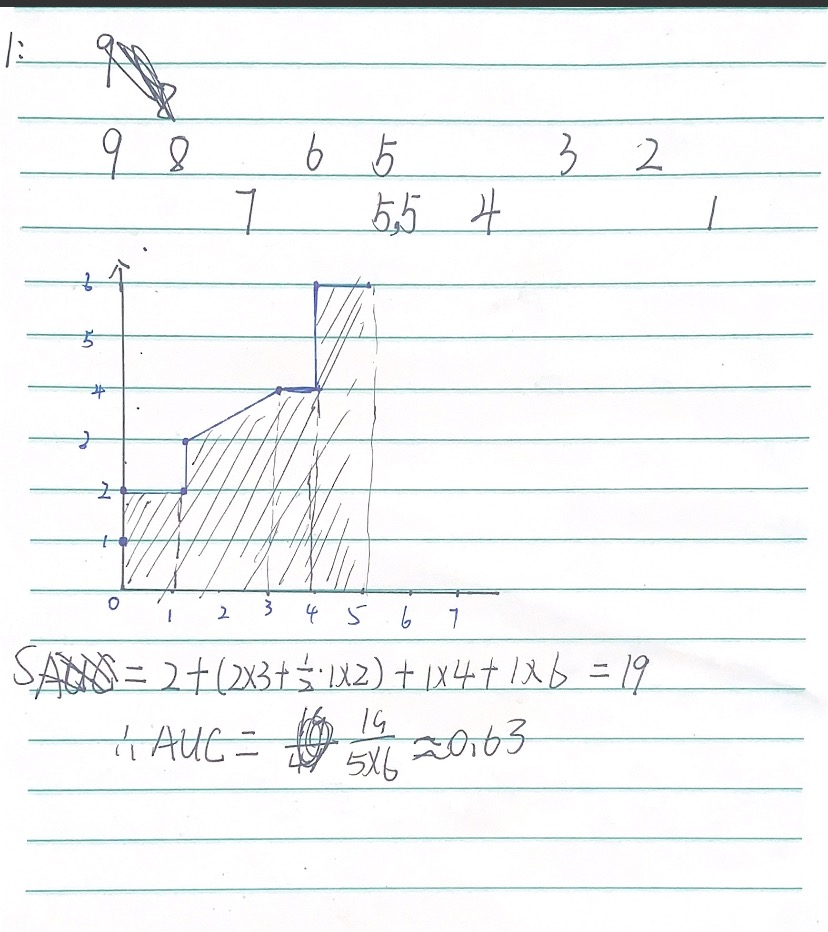 1:
9
9 8 6 5 3 2
7 5,5 4 1
6
5
4
3
2
1
0 1 2 3 4 5 6 7
S = 2+(2×3+½·1×2)+1×4+1×6 = 19
∴ AUC = 19/5×6 ≈0.63